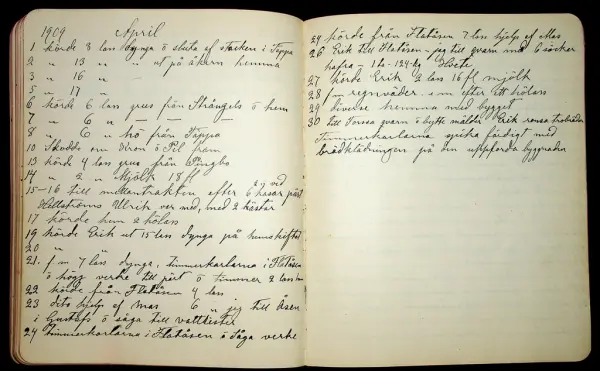 1909 April
1 körde 8 lass dynga ö sluta af stacken i Täppa
2 " 13 " " ut på åkern hemma
3 " 16 " "
5 " 17 "
6 körde 6 lass grus från Strångels ö hem
7 " 6 " — — —
8 " 6 " hö från Täppa
10 Skodde om Kron ö Pil fram
13 körde 4 lass grus från Pingbo
14 " 2 " Mjölk 18 ft
15-16 till milantrakten efter 6 kasar pärt
2 v ved
Hellströms Ulrik var med, med 2 hästar
17 körde hem 2 hölass
19 körde Erik ut 15 lass dynga på hemskiftet
20 " "
21. f m 7 lass dynga, timmerkarlarna i Flatåsen
ö högg verke till pärt ö timmer 2 lass
22 körde från Flatåsen 4 lass
23 dito hjelp af Mas 6 " jeg till Åsen
i Gustafs ö såga till vattlister
24 timmerkarlarna i Flatåsen ö såga verke
24 körde från Flatåsen 7 lass hjelp af Mas
26 Erik till Flatåsen - jeg till qvarn med 6 säcker
hafra - 124 kg
27 körde Erik 2 lass 16 ft mjölk
28 f m regnväder e m efter ett hölass
29 diverse hemma med bygget
30 till Torsa qvarn ö bytte mäld Erik rensa
Timmerkarlarna spikra färdigt med
brädklädningen på den uppförda byggnaden